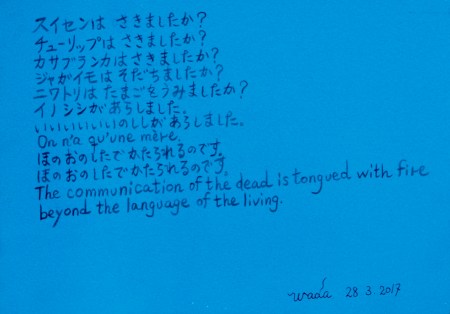 スイセンは さきましたか?
チューリップは さきましたか?
カサブランカはさきましたか?
ジャガイモは そだちましたか?
ニワトリは たまごをうみましたか?
イノシシがあらしました。
いいいいいいのししがあらしました。
On n'a qu'une mère.
ほのおのしたでかたられるのです。
ほのおのしたでかたられるのです。
The communication of the dead is tongued with fire
beyond the language of the living.
wada 28 3. 2017